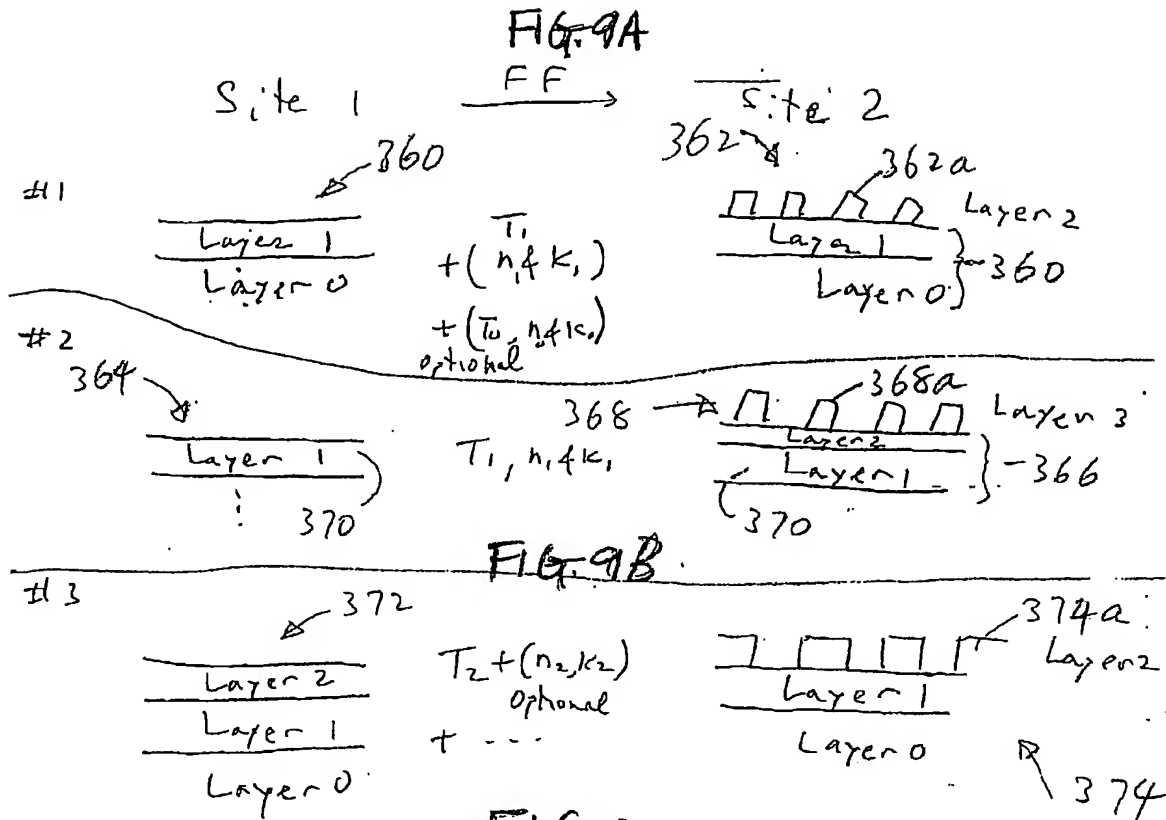 FIG. 9A
Site 1 FF Site 2
#1 360 362 362a
Layer 1
Layer 0
T₁
+ (n₁ & k₁)
+ (T₀, n₀ & k₀)
optional
Layer 2
Layer 1
Layer 0
360
#2
364
Layer 1
370
T₁, n₁ & k₁
368 368a
Layer 3
Layer 2
Layer 1
366
370
FIG. 9B
#3
372
Layer 2
Layer 1
Layer 0
T₂ + (n₂, k₂)
optional
+ ----
374a
Layer 2
Layer 1
Layer 0
374